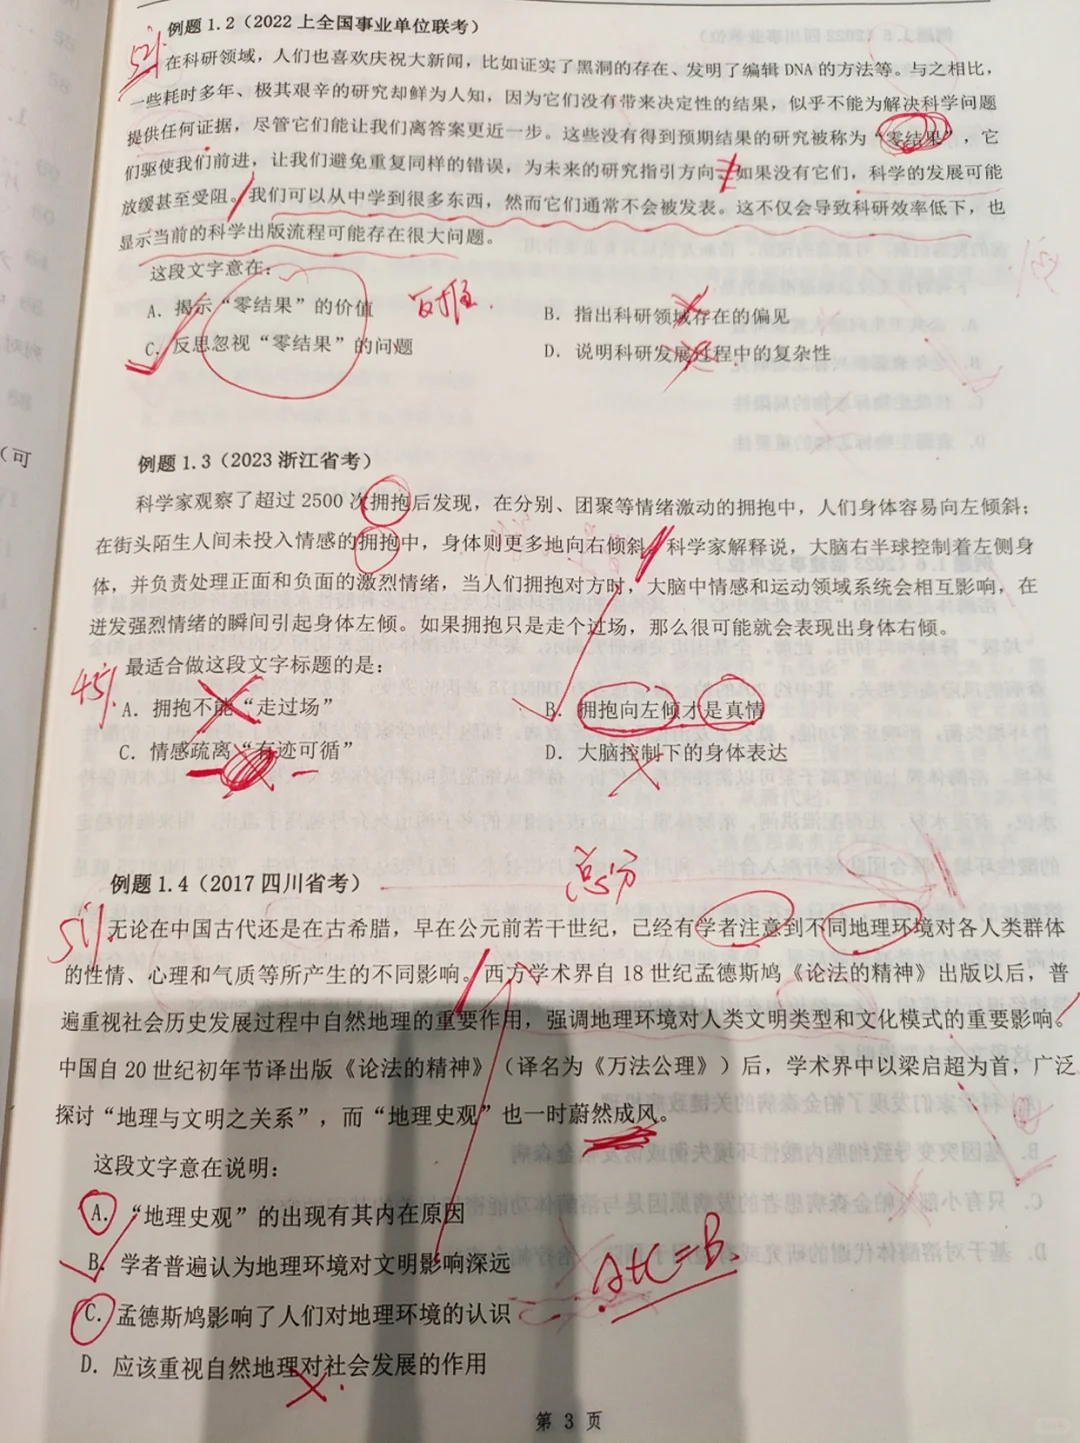 例题 1.2（2022 上全国事业单位联考）
在科研领域，人们也喜欢庆祝大新闻，比如证实了黑洞的存在、发明了编辑 DNA 的方法等。与之相比，
一些耗时多年、极其艰辛的研究却鲜为人知，因为它们没有带来决定性的结果，似乎不能为解决科学问题
提供任何证据，尽管它们能让我们离答案更近一步。这些没有得到预期结果的研究被称为“零结果”，它
们驱使我们前进，让我们避免重复同样的错误，为未来的研究指引方向。如果没有它们，科学的发展可能
放缓甚至受阻。我们可以从中学到很多东西，然而它们通常不会被发表。这不仅会导致科研效率低下，也
显示当前的科学出版流程可能存在很大问题。
这段文字意在：
A. 揭示“零结果”的价值
B. 指出科研领域存在的偏见
C. 反思忽视“零结果”的问题
D. 说明科研发展过程中的复杂性
（可
例题 1.3（2023 浙江省考）
科学家观察了超过 2500 次拥抱后发现，在分别、团聚等情绪激动的拥抱中，人们身体容易向左倾斜；
在街头陌生人间未投入情感的拥抱中，身体则更多地向右倾斜。科学家解释说，大脑右半球控制着左侧身
体，并负责处理正面和负面的激烈情绪，当人们拥抱对方时，大脑中情感和运动领域系统会相互影响，在
迸发强烈情绪的瞬间引起身体左倾。如果拥抱只是走个过场，那么很可能就会表现出身体右倾。
最适合做这段文字标题的是：
45%
A. 拥抱不能“走过场”
B. 拥抱向左倾才是真情
C. 情感疏离“有迹可循”
D. 大脑控制下的身体表达
总分
例题 1.4（2017 四川省考）
无论在中国古代还是在古希腊，早在公元前若干世纪，已经有学者注意到不同地理环境对各人类群体
的性情、心理和气质等所产生的不同影响。西方学术界自 18 世纪孟德斯鸠《论法的精神》出版以后，普
遍重视社会历史发展过程中自然地理的重要作用，强调地理环境对人类文明类型和文化模式的重要影响。
中国自 20 世纪初年节译出版《论法的精神》（译名为《万法公理》）后，学术界中以梁启超为首，广泛
探讨“地理与文明之关系”，而“地理史观”也一时蔚然成风。
这段文字意在说明：
A. “地理史观”的出现有其内在原因
B. 学者普遍认为地理环境对文明影响深远
A+C=B.
C. 孟德斯鸠影响了人们对地理环境的认识
D. 应该重视自然地理对社会发展的作用
第 3 页